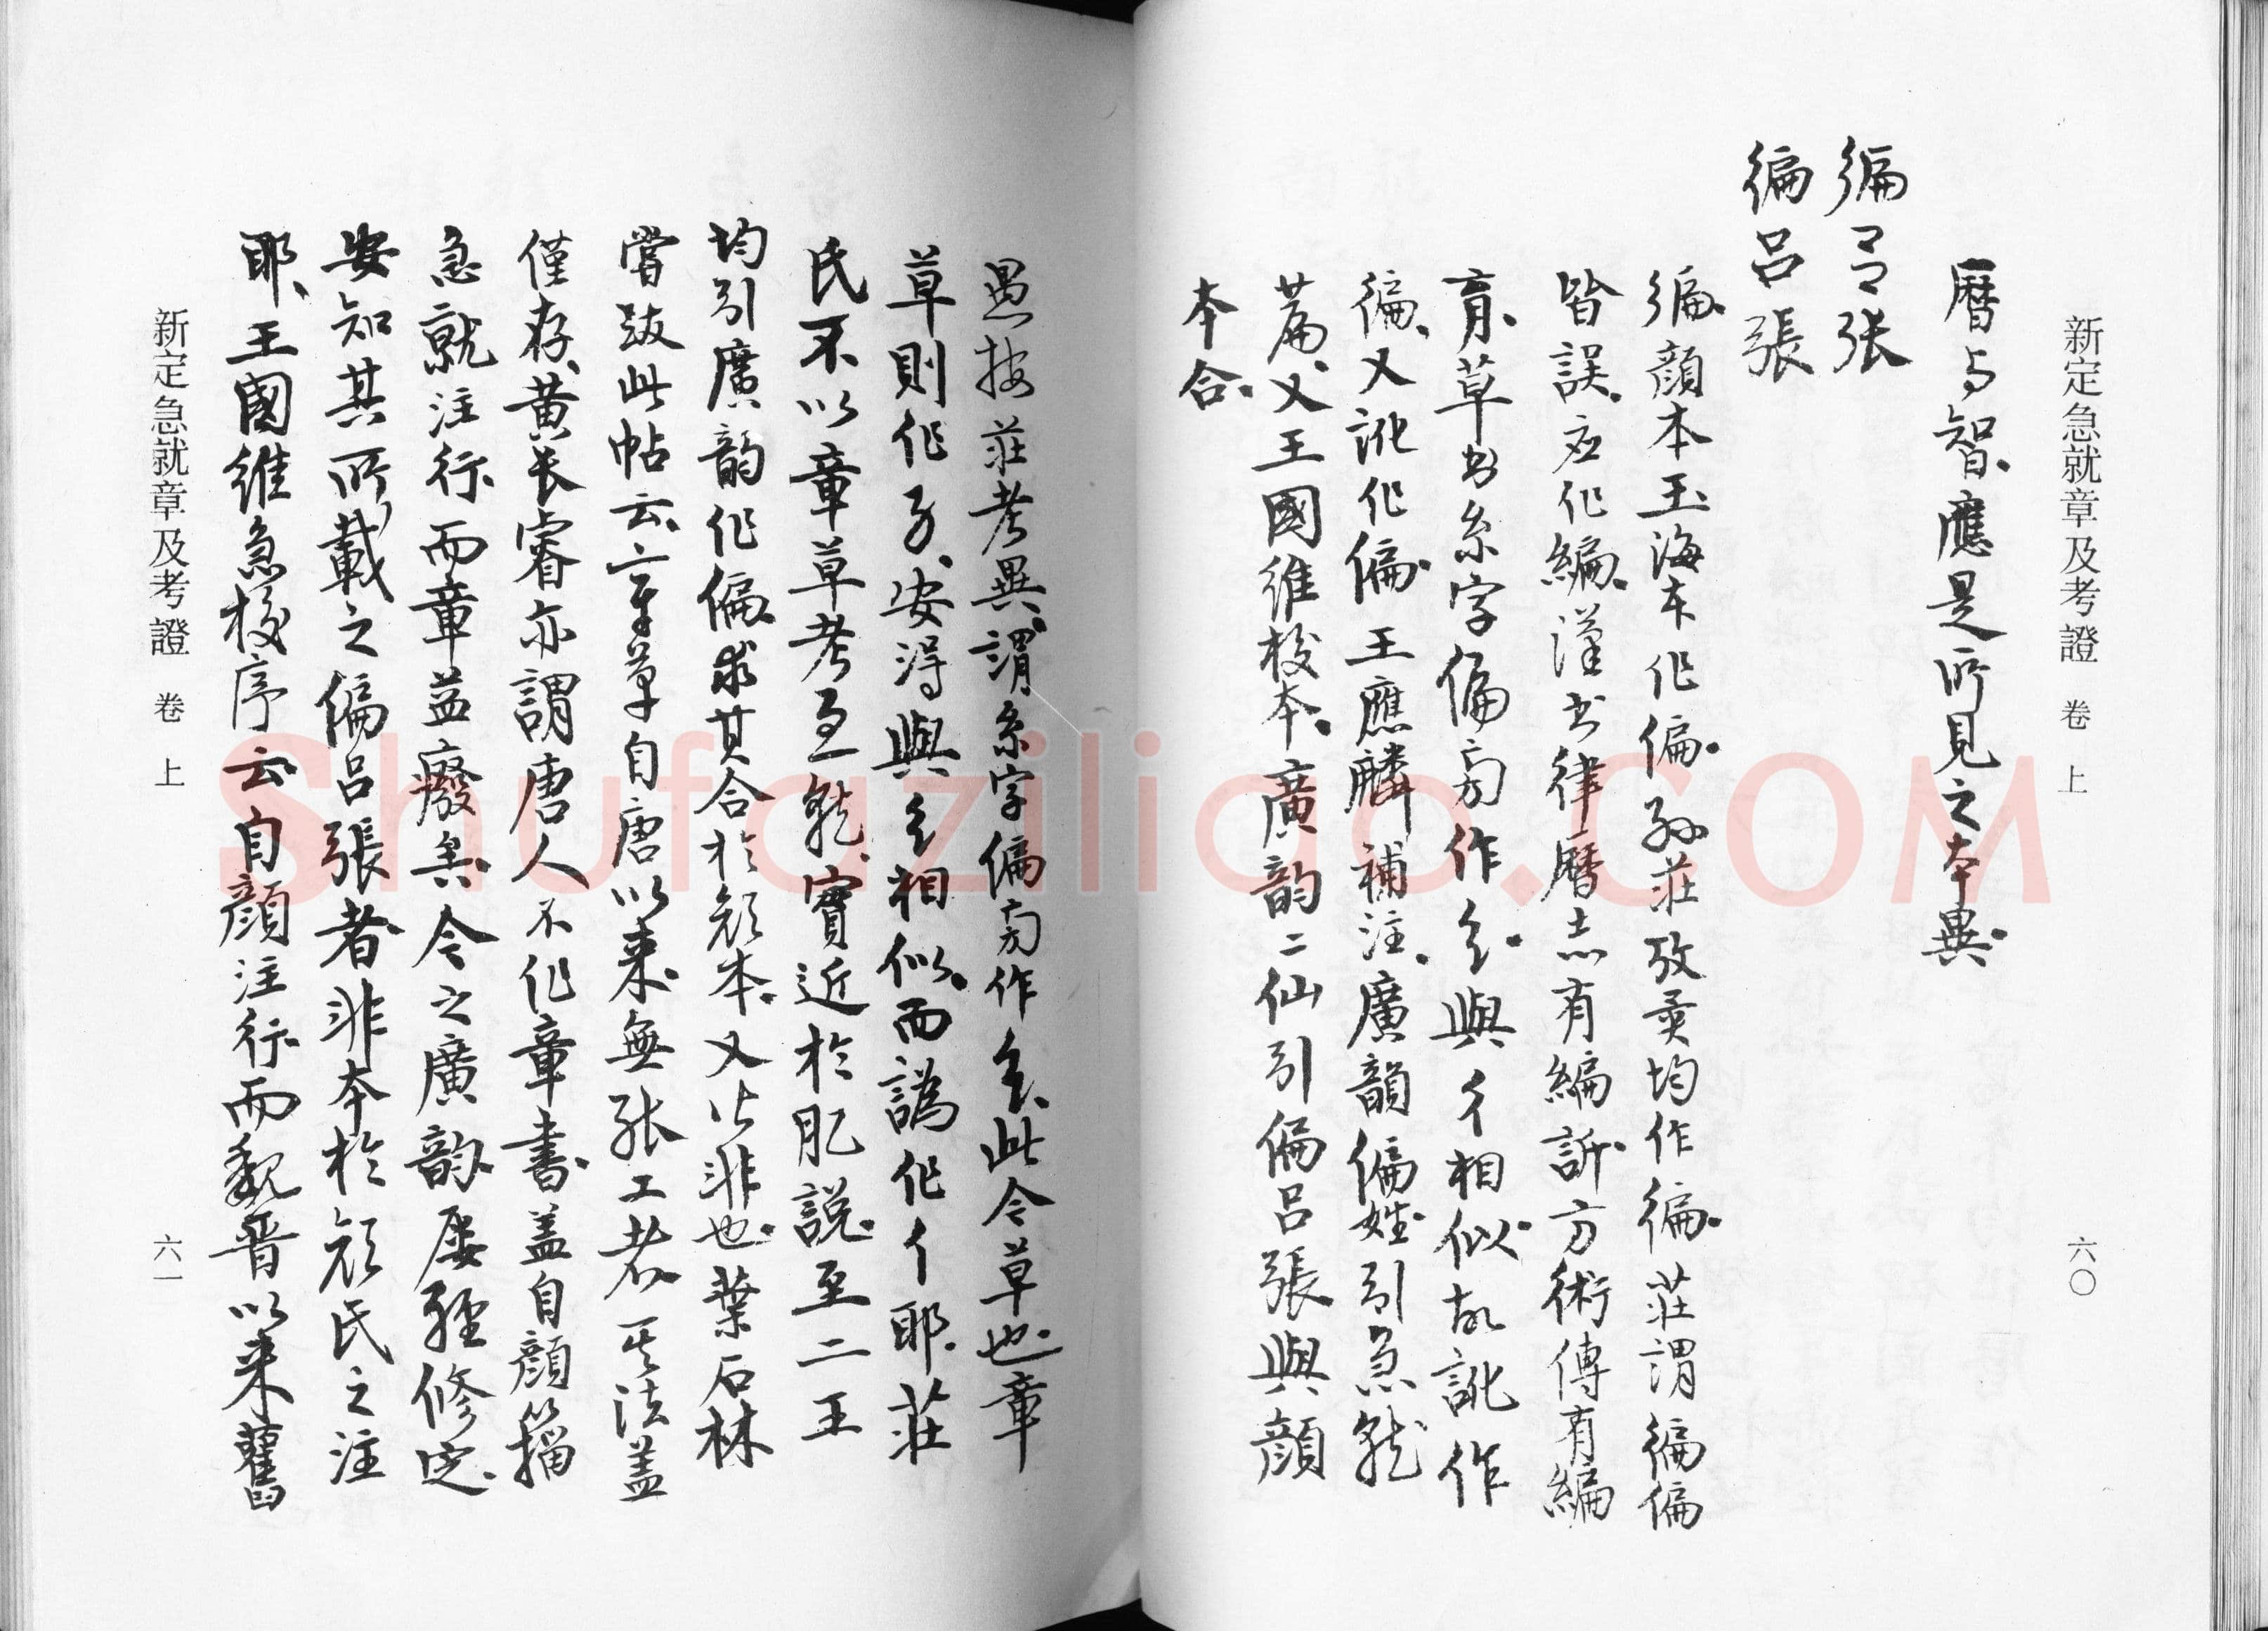 新定急就章及考證 卷上 六〇
曆与智應是所見之本異
徧呂张
徧呂張
徧顏本玉海本作偏孫莊攷異均作徧莊謂徧偏
皆誤应作編漢书律曆志有編訢方術傳有編
育草书糸字偏旁作 與彳相似故訛作
徧又訛作偏王應麟補注廣韻偏姓引急就
篇又王國維校本廣韵二仙引偏呂張與顏
本合
愚按莊考異謂糸字偏旁作 此今草也章
草則作 安得與 相似而譌作彳耶莊
氏不以章草考急就實近於肊說至二王
均引廣韵作偏求其合於顏本又皆非也葉石林
嘗跋此帖云章草自唐以来無张工者其法蓋
僅存黄长睿亦謂唐人不作章書蓋自顏籀
急就注行而章益廢矣今之廣韵屢經修定
安知其所載之偏呂張者非本於顏氏之注
耶王國維急校序云自顏注行而魏晋以来舊
新定急就章及考證 卷上 六一
Shufaziliao.COM